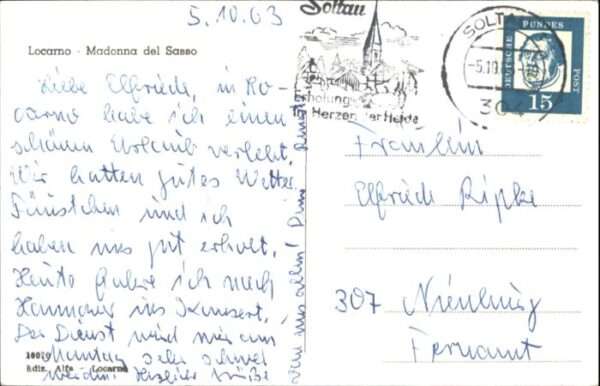 5.10.63
Locarno - Madonna del Sasso
Liebe Elfriede, in Lo-
carno habe ich einen
schönen Urlaub verlebt.
Wir hatten gutes Wetter,
und ich
haben uns gut erholt.
Heute fahre ich nach
Hannover ins Konzert.
Der Dienst wird mir am
Montag sehr schwer
werden! Herzliche Grüße
von uns allen! Dein
10070
Ediz. Alfa - Locarno
Soltau
Im Herzen der Heide
SOLTAU
-5.10.
304
DEUTSCHE BUNDESPOST
15
Fräulein
Elfriede Ripke
307 Nienburg
Fernamt